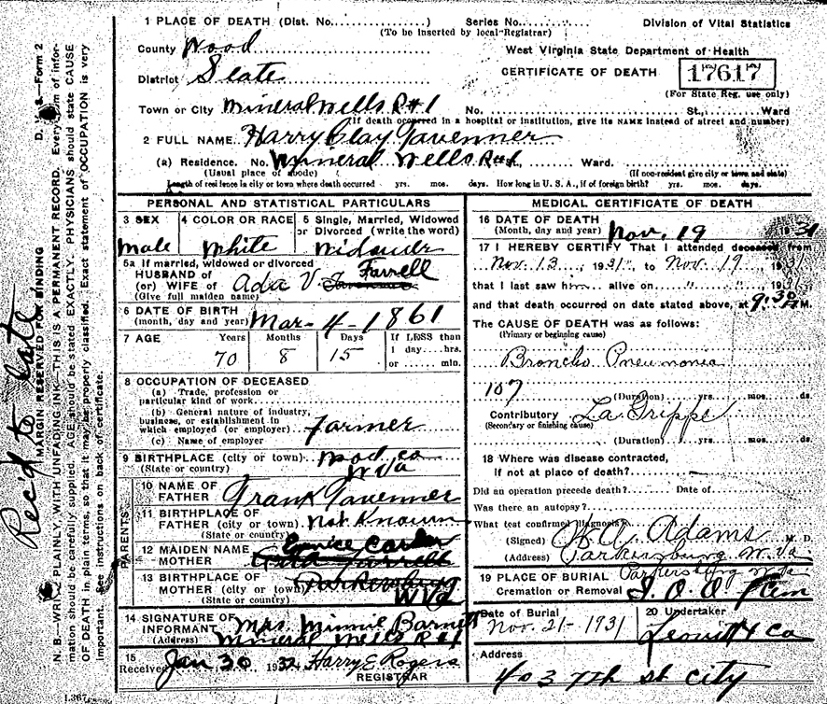 1 PLACE OF DEATH (Dist. No. ) Series No.
(To be inserted by local Registrar)
Division of Vital Statistics
County Wood
West Virginia State Department of Health
District Slate
CERTIFICATE OF DEATH 17617
(For State Reg. use only)
Town or City Mineralwells R#1 No. St., Ward
(If death occurred in a hospital or institution, give its NAME instead of street and number)
2 FULL NAME Harry Clay Tavenner
(a) Residence. No. Mineral Wells R#1 Ward.
(Usual place of abode) (If non-resident give city or town and state)
Length of residence in city or town where death occurred yrs. mos. days. How long in U. S. A., if of foreign birth? yrs. mos. days.
PERSONAL AND STATISTICAL PARTICULARS
3 SEX 4 COLOR OR RACE 5 Single, Married, Widowed or Divorced (write the word)
Male White Widower
5a If married, widowed or divorced
HUSBAND of
(or) WIFE of Ada V. Farrell
(Give full maiden name)
6 DATE OF BIRTH
(month, day and year) Mar-4-1861
7 AGE Years Months Days If LESS than
1 day hrs.
or min.
70 8 15
8 OCCUPATION OF DECEASED
(a) Trade, profession or
particular kind of work
(b) General nature of industry,
business, or establishment in
which employed (or employer) Farmer
(c) Name of employer
9 BIRTHPLACE (city or town) Wood co
(State or country) W Va
PARENTS
10 NAME OF
FATHER Frank Tavenner
11 BIRTHPLACE OF
FATHER (city or town) Not Known
(State or country)
12 MAIDEN NAME
MOTHER Eunice
13 BIRTHPLACE OF
MOTHER (city or town) Parkersburg
(State or country) W Va
14 SIGNATURE OF
INFORMANT Mrs. Minnie Barnett
(Address) Mineral Wells R#1
15
Received Jan 30, 1932 Harry E Rogers
REGISTRAR
MEDICAL CERTIFICATE OF DEATH
16 DATE OF DEATH
(Month, day and year) Nov. 19 1931
17 I HEREBY CERTIFY That I attended deceased from
Nov. 13, 1931, to Nov. 19, 1931
that I last saw him alive on " " 1931
and that death occurred on date stated above, at 9:30 M.
The CAUSE OF DEATH was as follows:
(Primary or beginning cause)
Broncho Pneumonia
107
(Duration) yrs. mos. ds.
Contributory La Grippe
(Secondary or finishing cause)
(Duration) yrs. mos. ds.
18 Where was disease contracted,
If not at place of death?
Did an operation precede death? Date of
Was there an autopsy?
What test confirmed diagnosis?
(Signed) Adams M. D.
(Address) Parkersburg W. Va
19 PLACE OF BURIAL Parkersburg W. Va.
Cremation or Removal I. O. O. F Cem
Date of Burial 20 Undertaker
Nov. 21-1931 Leavitt & Co
Address
403 7th st City
Rec'd to late
MARGIN RESERVED FOR BINDING D. V. S.—Form 2
N. B.—WRITE PLAINLY, WITH UNFADING INK—THIS IS A PERMANENT RECORD. Every item of infor-
mation should be carefully supplied. AGE should be stated EXACTLY. PHYSICIANS should state CAUSE
OF DEATH in plain terms, so that it may be properly classified. Exact statement of OCCUPATION is very
important. See instructions on back of certificate.